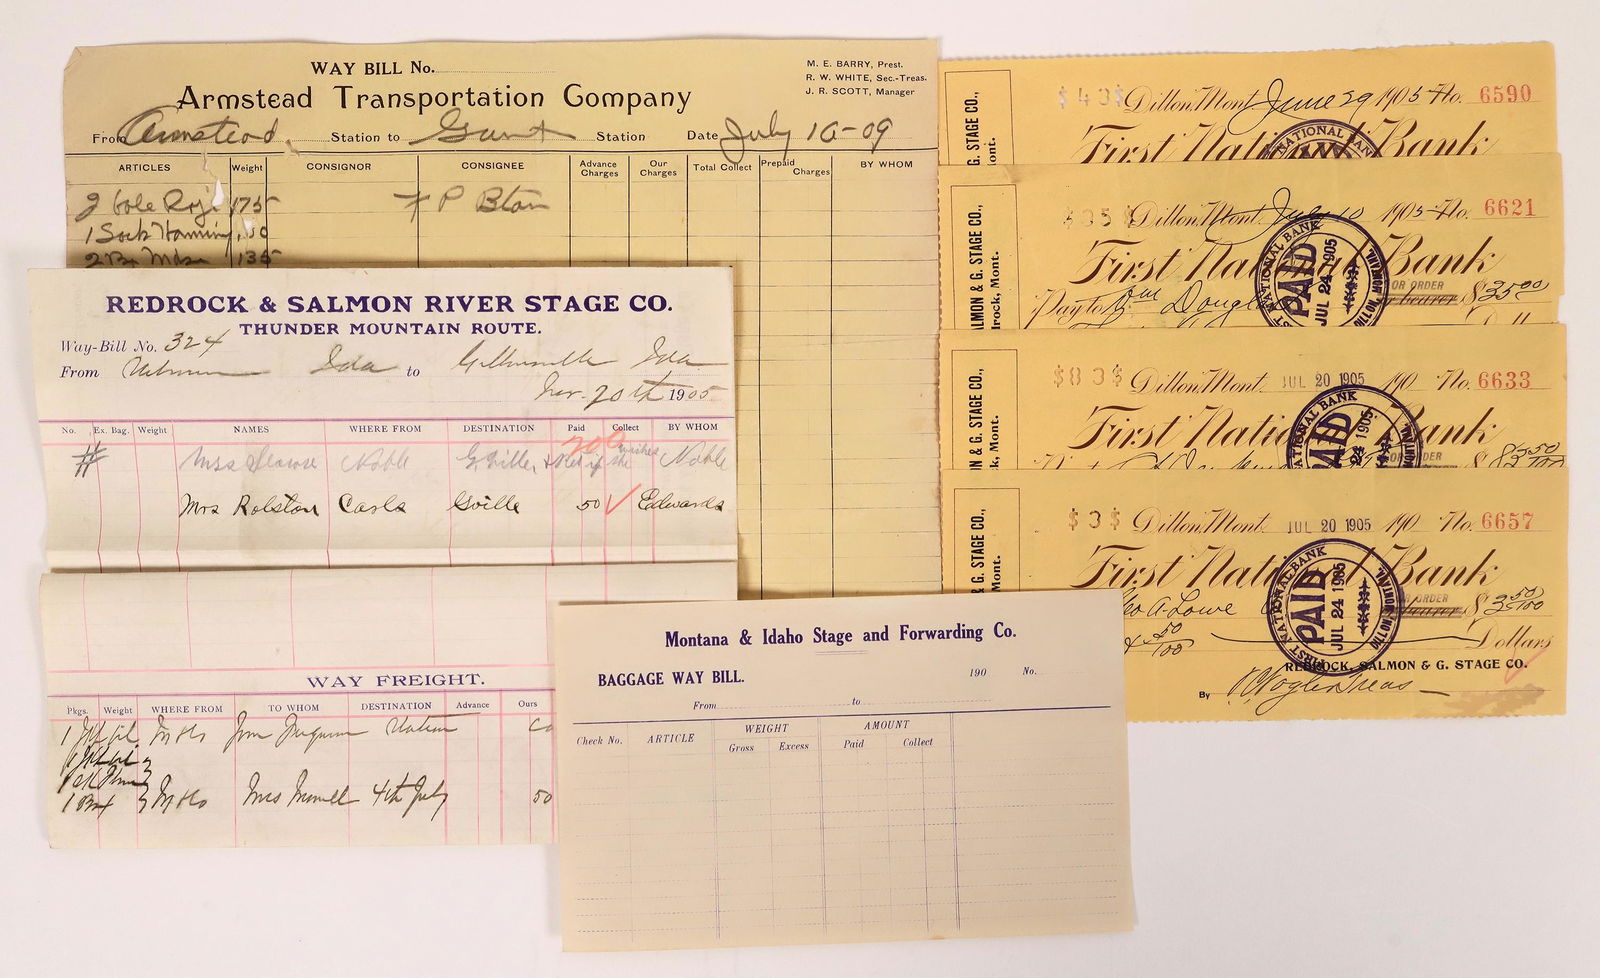 WAY BILL No.
M. E. BARRY, Prest.
R. W. WHITE, Sec.-Treas.
J. R. SCOTT, Manager
Armstead Transportation Company
From Armstead Station to Grant Station Date July 10-09
ARTICLES Weight CONSIGNOR CONSIGNEE Advance Charges Our Charges Total Collect Prepaid Charges BY WHOM
175
1 Sack
2 Bx 135
REDROCK & SALMON RIVER STAGE CO.
THUNDER MOUNTAIN ROUTE.
Way-Bill No. 324
From Ida to Gibbonsville Ida
Nov. 20th 1905
No. Ex. Bag. Weight NAMES WHERE FROM DESTINATION Paid Collect BY WHOM
Mrs Noble Gville if she wishes Noble
Mrs Rolston Carls Gville 50 Edwards
WAY FREIGHT.
Pkgs. Weight WHERE FROM TO WHOM DESTINATION Advance Ours
1
1 Bx Mrs 4th July 50
Montana & Idaho Stage and Forwarding Co.
BAGGAGE WAY BILL. 190 No.
From to
Check No. ARTICLE WEIGHT AMOUNT
Gross Excess Paid Collect
G. STAGE CO.,
ont.
$40$ Dillon, Mont. June 29 1905 No. 6590
First National Bank
NATIONAL BAN
LMON & G. STAGE CO.,
drock, Mont.
$35$ Dillon, Mont. July 10 1905 No. 6621
First National Bank
Pay to Wm Dougl OR ORDER or bearer $35 00
FIRST NATIONAL BANK PAID JUL 24 1905 DILLON, MONTANA.
N & G. STAGE CO.,
k, Mont.
$83$ Dillon, Mont. JUL 20 1905 190 No. 6633
First National Bank
NATIONAL BANK PAID 24 1905 MONTANA
OR ORDER $83 50/100
& G. STAGE CO.,
Mont.
$3$ Dillon, Mont. JUL 20 1905 190 No. 6657
First National Bank
Geo A. Lowe OR ORDER bearer $3 50/100
FIRST NATIONAL BANK PAID JUL 24 1905 DILLON, MONTANA.
50/100 Dollars
REDROCK, SALMON & G. STAGE CO.
By Treas